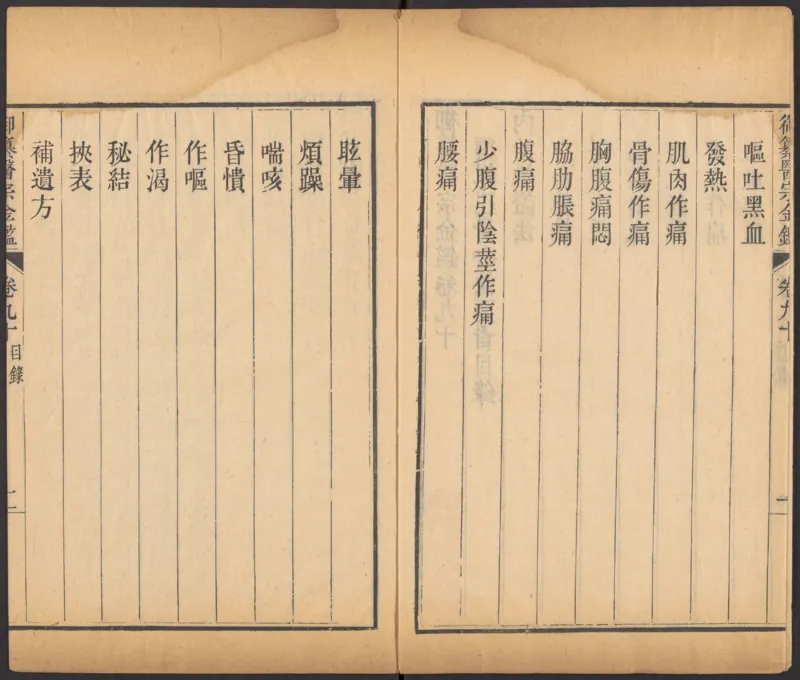 御纂醫宗金鑑
卷九十
嘔吐黑血
發熱
肌肉作痛
骨傷作痛
胸腹痛悶
脇肋脹痛
腹痛
少腹引陰莖作痛
腰痛
眩暈
煩躁
喘咳
昏憒
作嘔
作渴
秘結
挾表
補遺方
御纂醫宗金鑑
卷九十
目錄
二